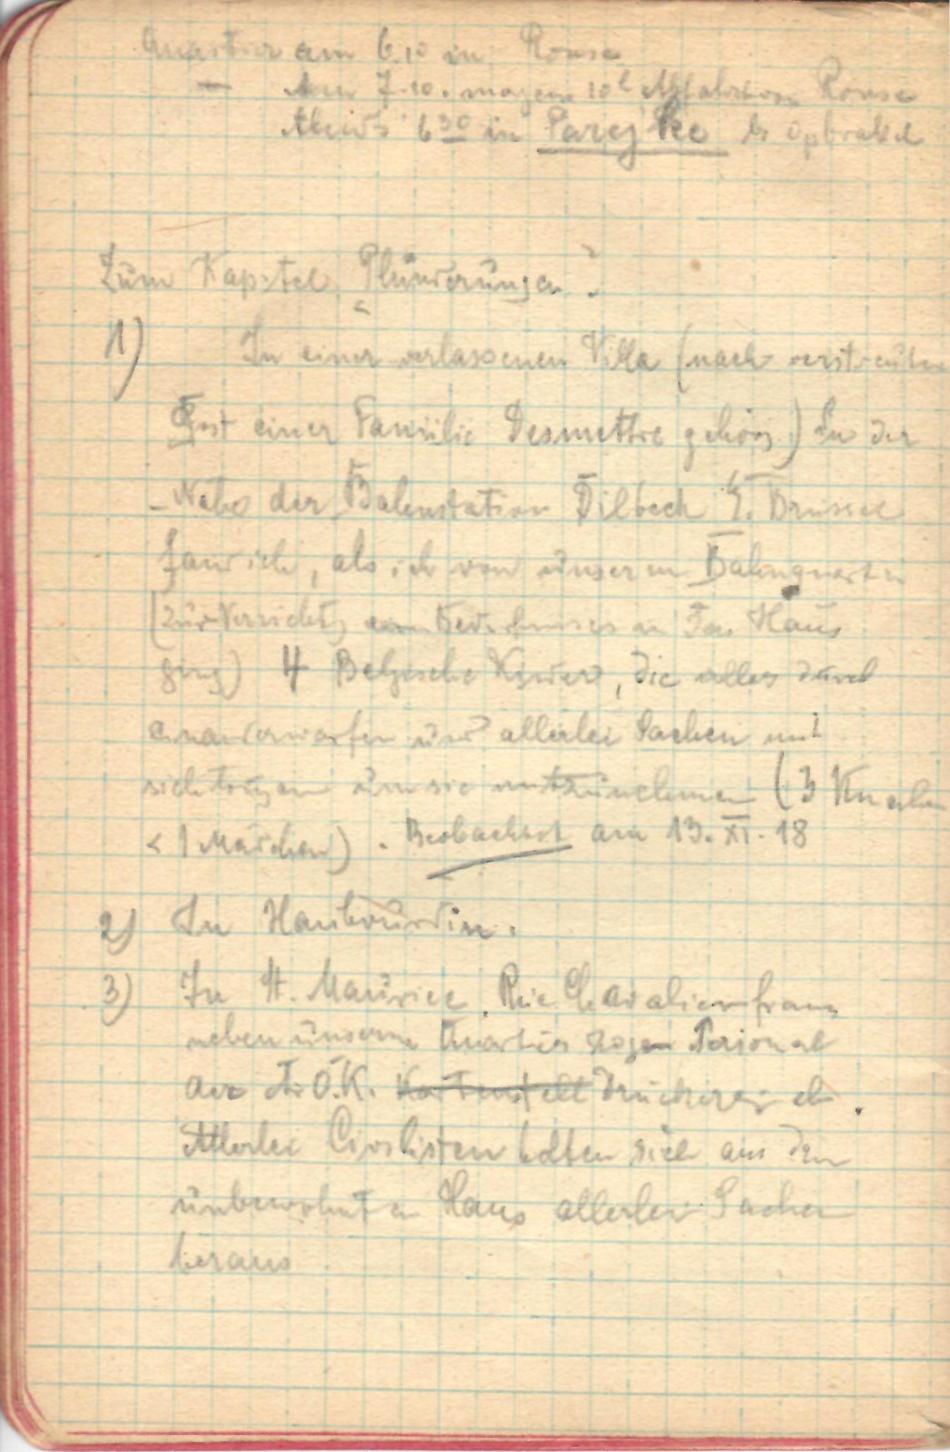 Quartier am 6.10 in Ronse
— Am 7.10. morgens 10h Abfahrt von Ronse
Abends 6 30 in Parijke b. Opbrakel
Zum Kapitel „Plünderungen“:
1) In einer verlassenen Villa (nach verstreuter
Post einer Familie Desmettre gehörig) in der
Nähe der Bahnstation Dilbeck b. Brüssel
fand ich, als ich von unserem Bahnquartier
(zur Verrichtg eines Bedürfnisses in das Haus
ging) 4 Belgische Kinder, die alles durch
einanderwarfen und allerlei Sachen mit
sich trugen um sie mitzunehmen (3 Knaben
& 1 Mädchen). Beobachtet am 13.XI.18
2) In Haubourdin.
3) In St. Maurice, Rue Chevalier francs
neben unserem Quartier zogen Personal
der A.O.K. Druckerei ab.
Allerlei Civilisten holten sich aus dem
unbewohnten Haus allerlei Sachen
heraus